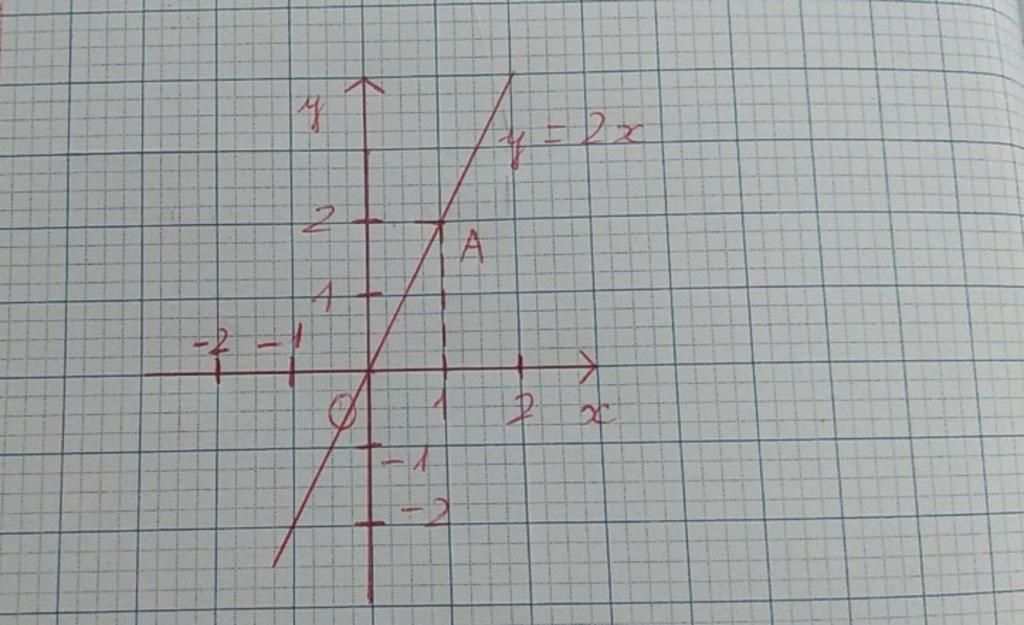 y
y = 2x
2
A
1
-2 -1
O 1 2 x
-1
-2